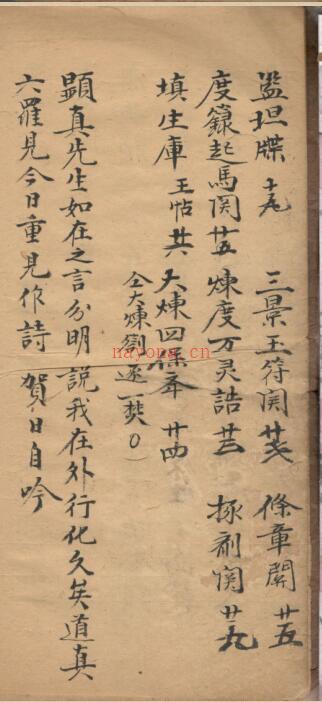 監坦牒 十九 三景玉符関 廿六 條章關 廿五
度籙起馬関 廿五 煉度万灵誥 廿三 揀劄関 廿九
填生庫 王帖 共 大煉四條 廿四
仝大煉劄逐一焚〇
顕真先生如在之言分明説我在外行化久矣道真
六羅見今日重見作詩 賀日自吟
nayona.cn